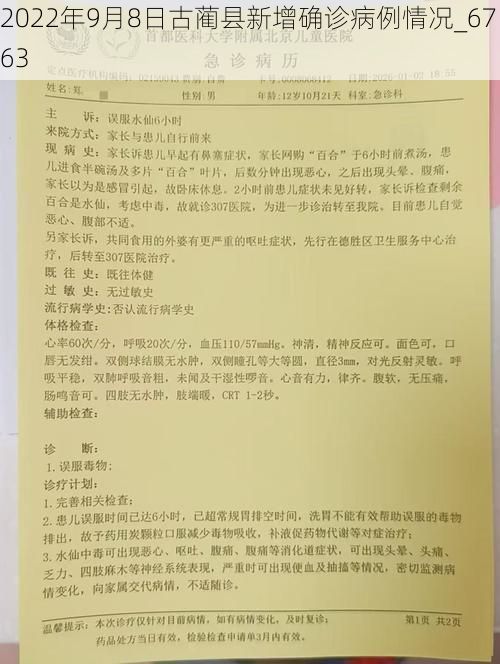 2022年9月8日古蔺县新增确诊病例情况_67
63
首都医科大学附属北京儿童医院
急诊病历
定点医疗机构编码: 02150043 费别: 自费 2026-01-02 18:55
姓名: 郑 性别: 男 年龄: 12岁10月21天 科室: 急诊科
主 诉: 误服水仙6小时
来院方式: 家长与患儿自行前来
现 病 史: 家长诉患儿早起有鼻塞症状，家长网购“百合”于6小时前煮汤，患
儿进食半碗汤及多片“百合”叶片，后数分钟出现恶心，之后出现头晕、腹痛，
家长以为是感冒引起，故卧床休息。2小时前患儿症状未见好转，家长诉检查剩余
百合是水仙，考虑中毒，故就诊307医院，为进一步诊治转至我院。目前患儿自觉
恶心、腹部不适。
另家长诉，共同食用的外婆有更严重的呕吐症状，先行在德胜区卫生服务中心治
疗，后转至307医院治疗。
既 往 史: 既往体健
过 敏 史: 无过敏史
流行病学史: 否认流行病学史
体格检查:
心率60次/分，呼吸20次/分，血压110/57mmHg。神清，精神反应可。面色可。口
唇无发绀。双侧球结膜无水肿，双侧瞳孔等大等圆，直径3mm，对光反射灵敏。呼
吸平稳，双肺呼吸音粗，未闻及干湿性啰音。心音有力，律齐。腹软，无压痛，
肠鸣音可。四肢无水肿，肢端暖，CRT 1-2秒。
辅助检查:
诊 断:
1.误服毒物;
诊疗计划:
1.完善相关检查;
2.患儿误服时间已达6小时，已超常规胃排空时间，洗胃不能有效帮助误服的毒物
排出，故予药用炭颗粒口服减少毒物吸收，补液促药物代谢等对症治疗;
3.水仙中毒可出现恶心、呕吐、腹痛、腹痛等消化道症状，可出现头晕、头痛、
乏力、四肢麻木等神经系统表现，严重时可出现便血及抽搐等情况，密切监测病
情变化，向家属交代病情，不适随诊。
温馨提示: 本次诊疗仅针对目前病情，如有病情变化，及时复诊; 第1页 共2页
药品处方当日有效，检验检查申请单3月内有效。